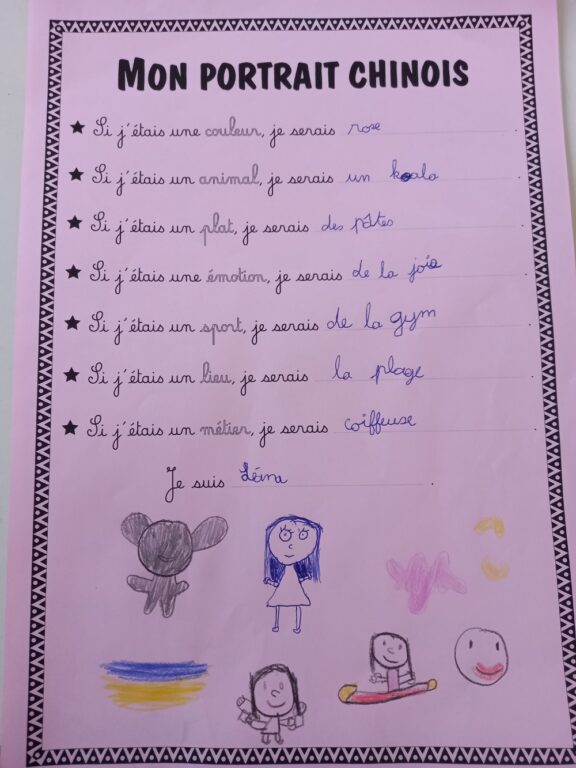 MON PORTRAIT CHINOIS
Si j'étais une couleur, je serais rose.
Si j'étais un animal, je serais un koala.
Si j'étais un plat, je serais des pâtes.
Si j'étais une émotion, je serais de la joie.
Si j'étais un sport, je serais de la gym.
Si j'étais un lieu, je serais la plage.
Si j'étais un métier, je serais coiffeuse.
Je suis Léina.